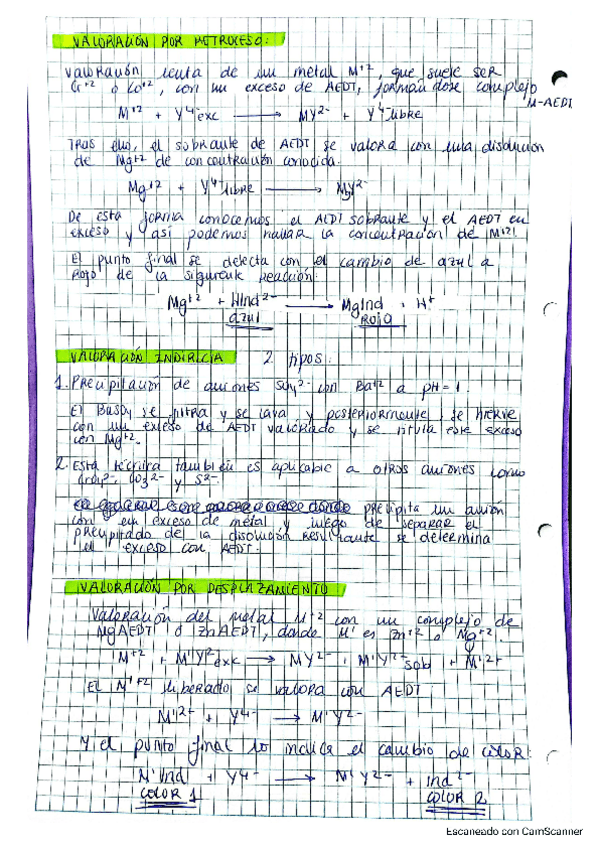 VALORACIÓN POR RETROCESO:
Valoración lenta de un metal M+2, que suele ser
Cr+2 ó Co+2, con un exceso de AEDT, formándose complejo
M-AEDT
M+2 + Y4-exc → MY2- + Y4-libre
Tras ello, el sobrante de AEDT se valora con una disolución
de Mg+2 de concentración conocida.
Mg+2 + Y4-libre → MgY2-
De esta forma conocemos el AEDT sobrante y el AEDT en
exceso y así podemos hallar la concentración de M+2!
El punto final se detecta con el cambio de azul a
rojo de la siguiente reacción:
Mg+2 + HInd2- → MgInd + H+
azul ROJO
VALORACIÓN INDIRECTA 2 tipos:
1. Precipitación de aniones SO4 2- con Ba+2 a pH = 1.
El BaSO4 se filtra y se lava y posteriormente se hierve
con un exceso de AEDT valorado y se titula este exceso
con Mg+2.
2. Esta técnica también es aplicable a otros aniones como
CrO4 2-, CO3 2- y S2-
precipita un anión
con un exceso de metal y luego de separar el
precipitado de la disolución resultante se determina
el exceso con AEDT.
VALORACIÓN POR DESPLAZAMIENTO
Valoración del metal M+2 con un complejo de
MgAEDT ó ZnAEDT, donde M' es Zn+2 o Mg+2.
M+2 + M'Y2-exc → MY2- + M'Y2-sob + M'2+
El M'+2 liberado se valora con AEDT
M'2+ + Y4- → M'Y2-
Y el punto final lo indica el cambio de color:
M'Ind + Y4- → M'Y2- + Ind2-
COLOR 1 COLOR 2
Escaneado con CamScanner